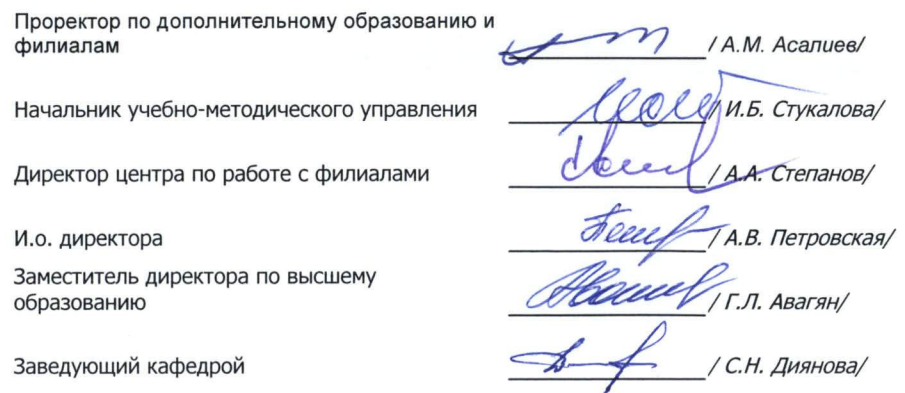 Проректор по дополнительному образованию и
филиалам / А.М. Асалиев/
Начальник учебно-методического управления / И.Б. Стукалова/
Директор центра по работе с филиалами / А.А. Степанов/
И.о. директора / А.В. Петровская/
Заместитель директора по высшему
образованию / Г.Л. Авагян/
Заведующий кафедрой / С.Н. Диянова/